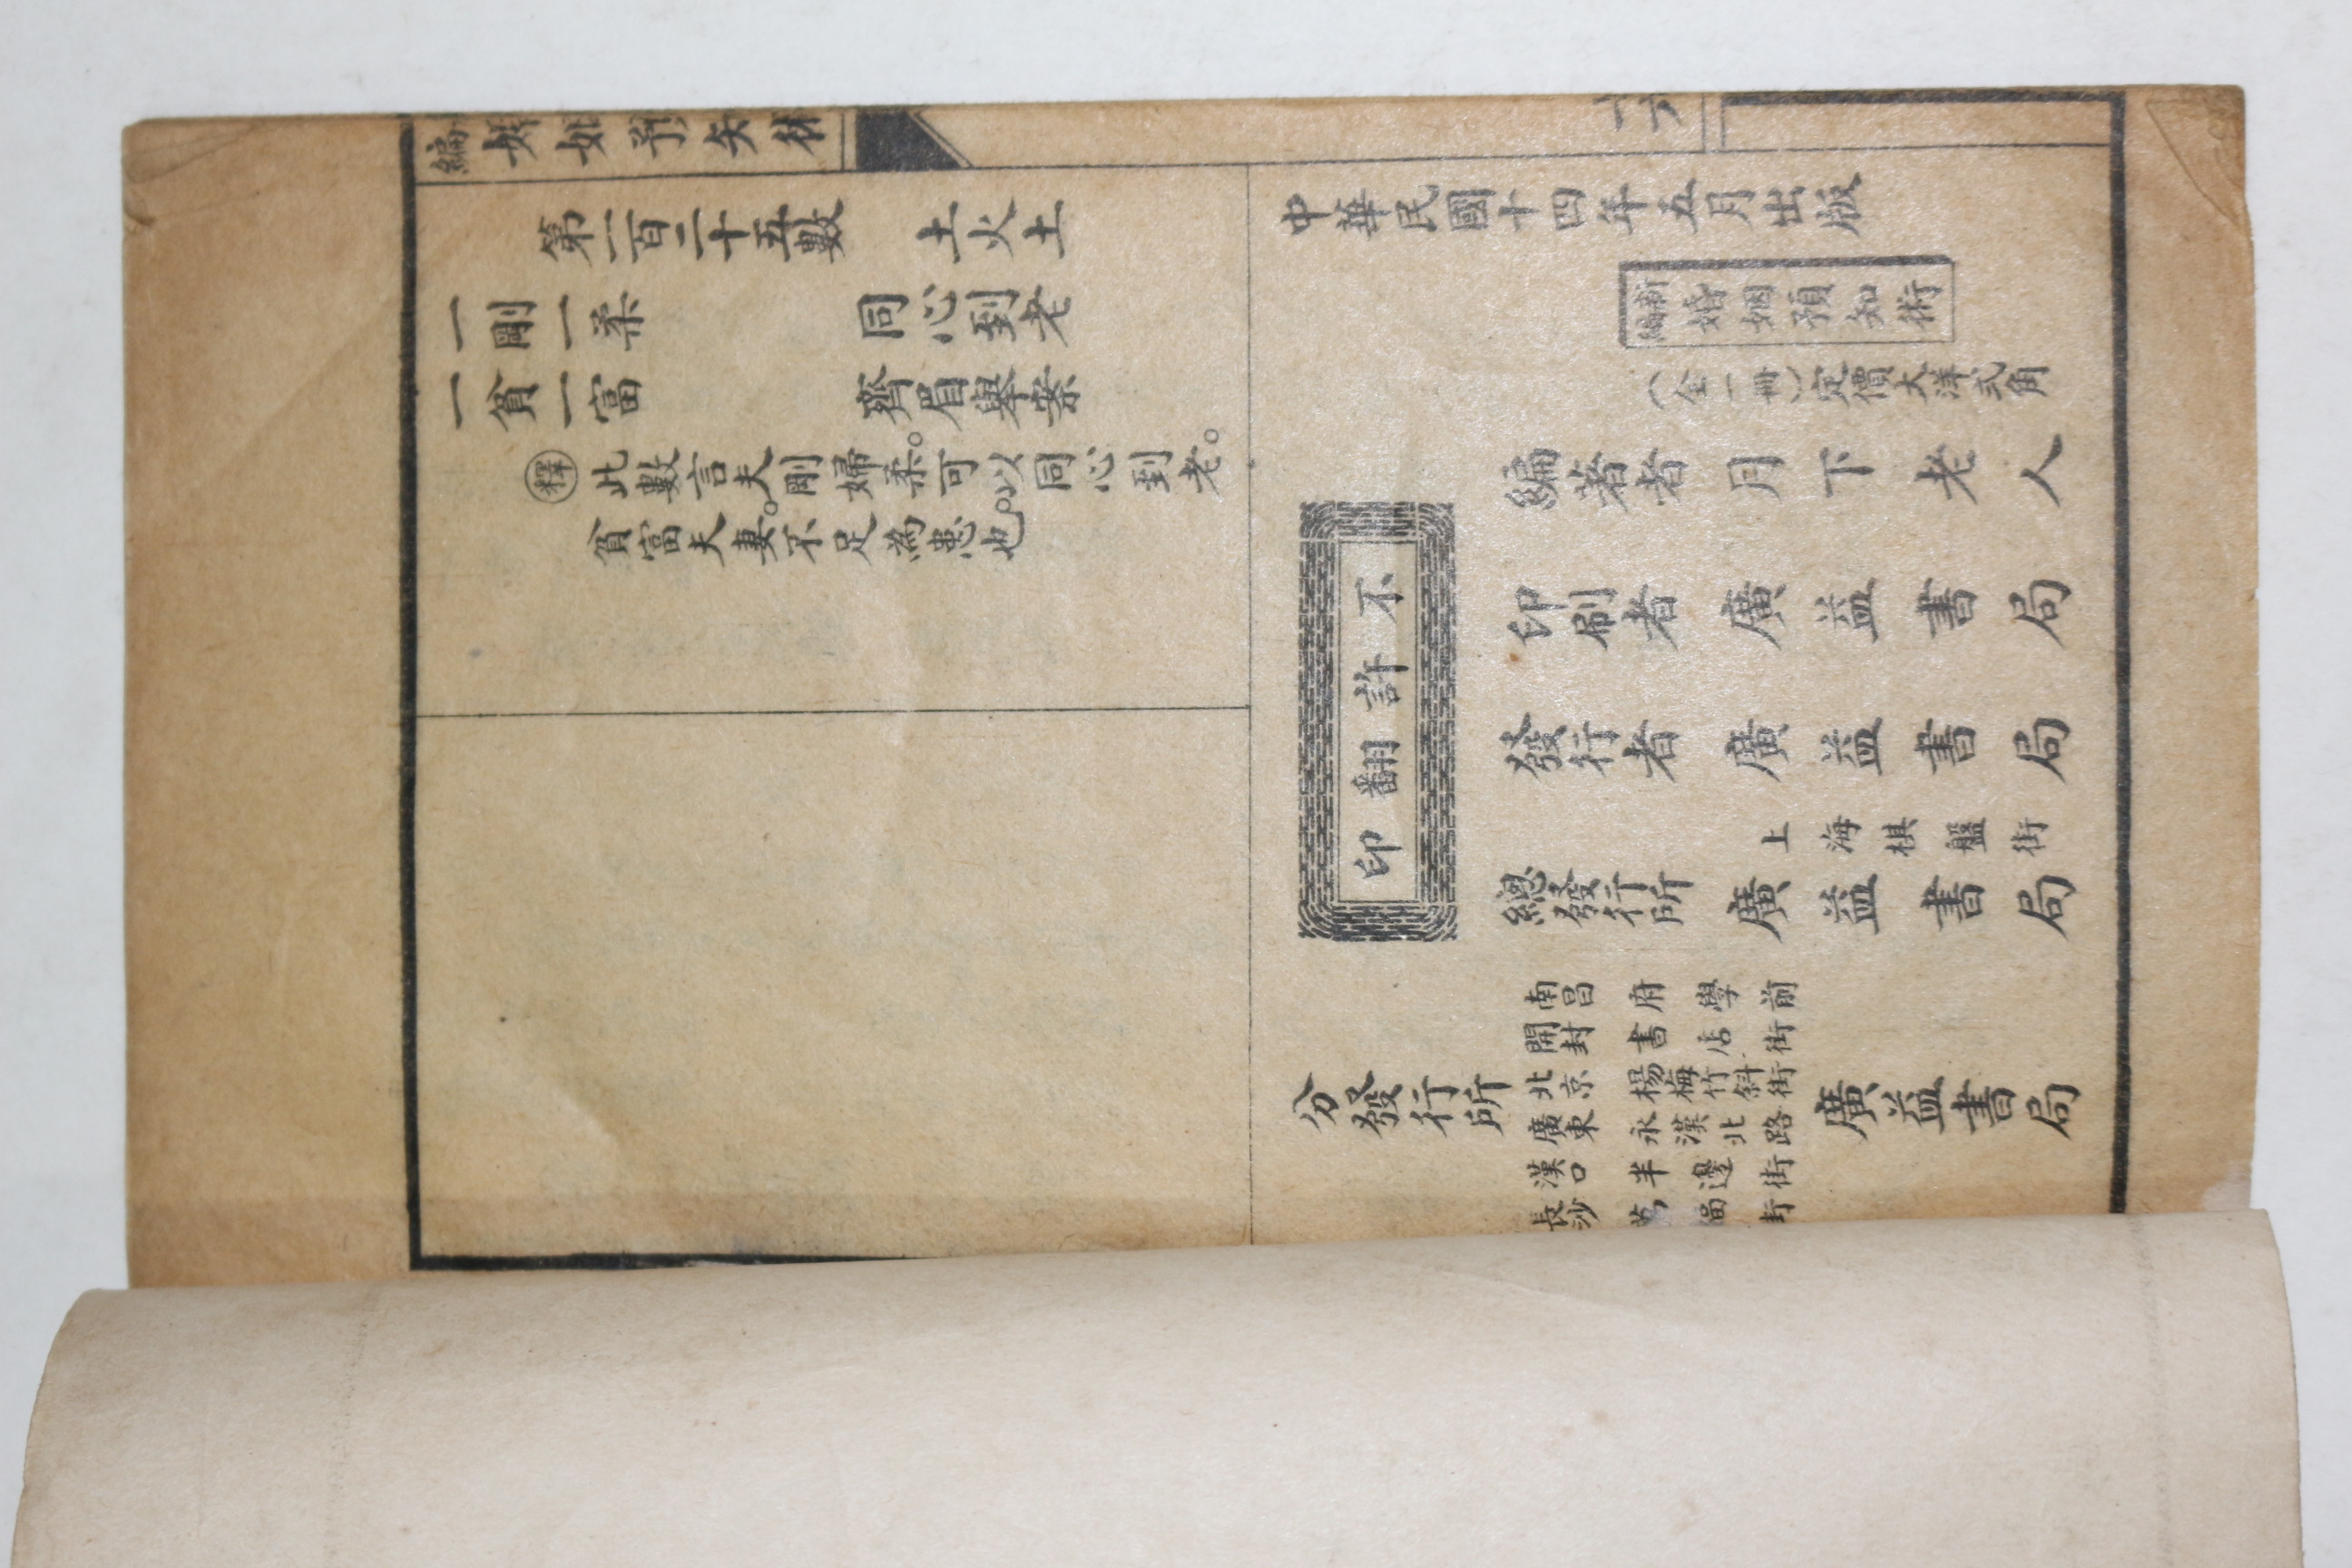 第一百二十五數　土火土
一剛一柔　同心到老
一貧一富　齊眉舉案
釋 此數言夫剛婦柔。可以同心到老。
貧富夫妻。不足為患也。
中華民國十四年五月出版
新編 婚姻預知術
（全一冊）定價大洋弍角
編著者　月下老人
印刷者　廣益書局
發行者　廣益書局
上海棋盤街
總發行所　廣益書局
不許翻印
分發行所
南昌　府學前
開封　書店街
北京　楊梅竹斜街
廣東　永漢北路
漢口　半邊街
長沙
廣益書局